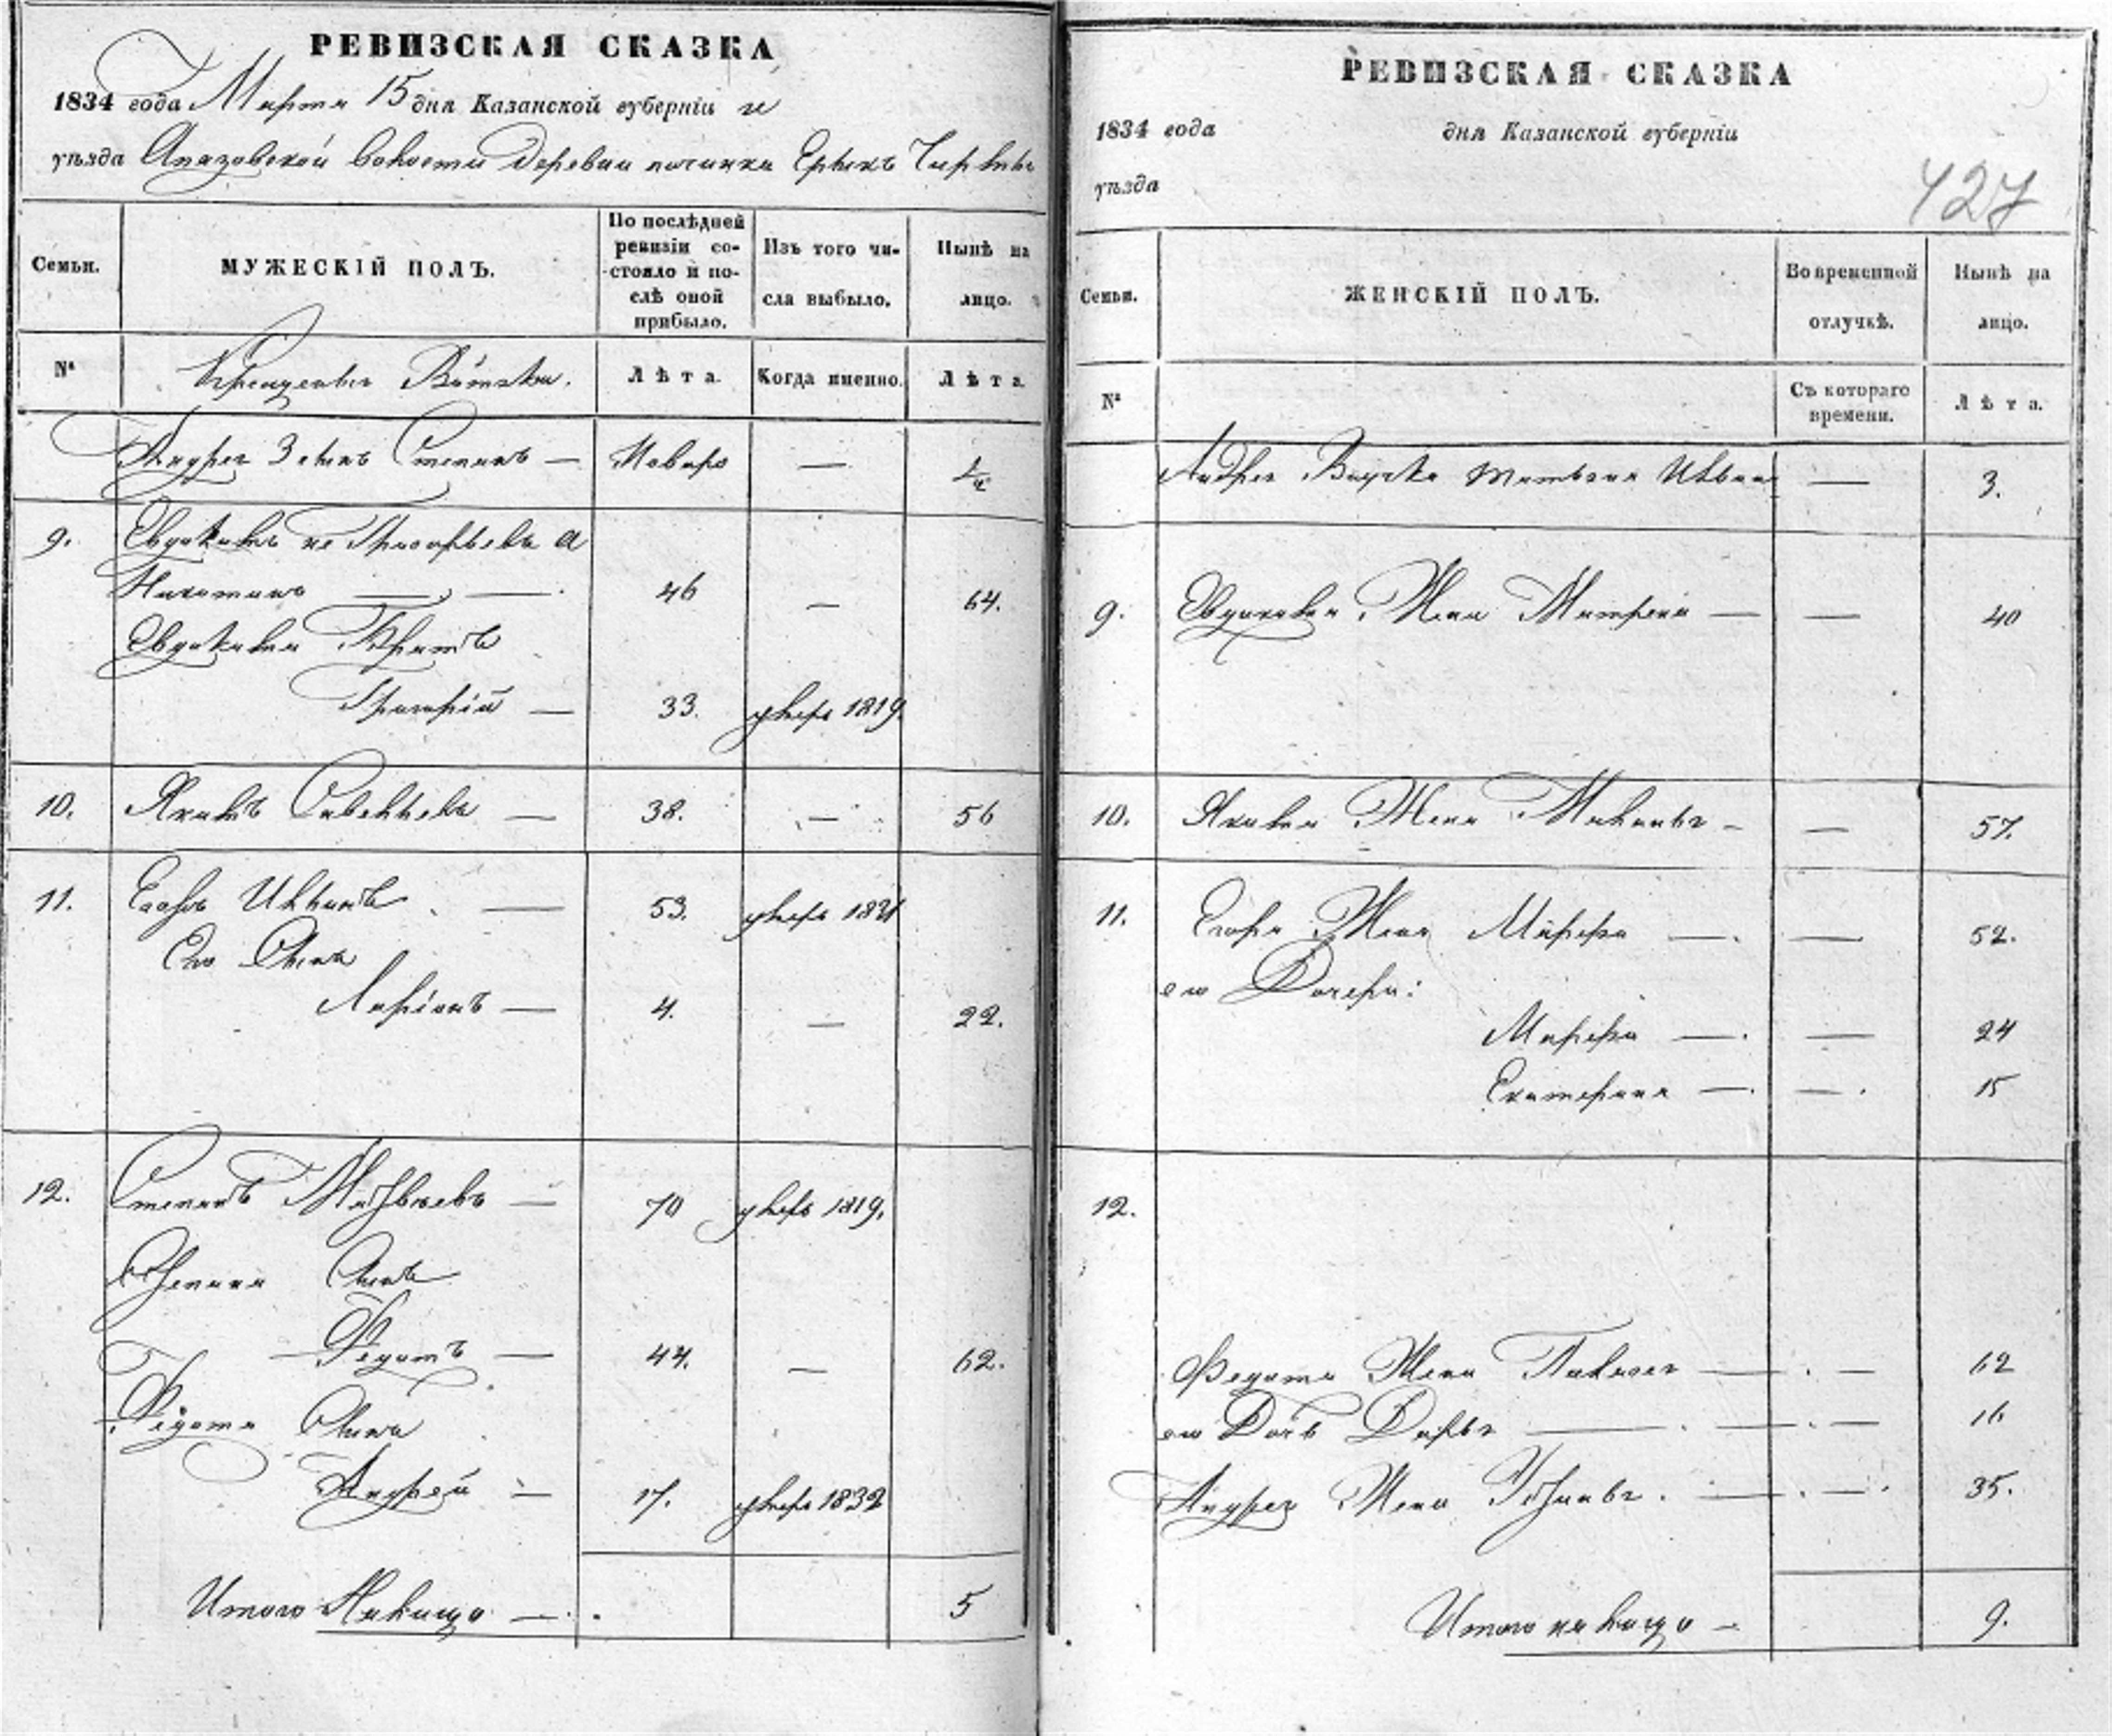 РЕВИЗСКАЯ СКАЗКА
1834 года Марта 15 дня Казанской губерніи и
уѣзда Апазовской волости деревни починка
Семьи.
МУЖЕСКІЙ ПОЛЪ.
По послѣдней ревизіи состояло и послѣ оной прибыло.
Изъ того числа выбыло.
Нынѣ на лицо.
№
Крещеныя Вотяки.
Лѣта.
Когда именно.
Лѣта.
Андрея 3 сынъ Степанъ —
9. Евдокимъ не Григорьевъ а
Никитинъ — 46 — 64.
Евдокима Братъ
Григорій — 33. умеръ 1819
10. Якимъ Савельевъ — 38. — 56
11. Егоръ Ивановъ — 53. умеръ 1831
Его Сынъ
Ларіонъ — 4. — 22.
12. Степанъ Матвѣевъ — 70 умеръ 1819.
Степана Сынъ
Федотъ — 44. — 62.
Федота Сынъ
Андрей — 17. умеръ 1832
Итого Налицо — 5
РЕВИЗСКАЯ СКАЗКА
1834 года дня Казанской губерніи
уѣзда
427
Семьи.
ЖЕНСКІЙ ПОЛЪ.
Во временной отлучкѣ.
Нынѣ на лицо.
№
Съ котораго времени.
Лѣта.
Андрея Внучка — 3.
9. Евдокима Жена Матрена — — 40
10. Якима Жена — — 57.
11. Егора Жена Марфа — — 52.
его Дочери:
Марфа — — 24
Екатерина — — 15
12.
Федота Жена Пелагея — — 62
его Дочь Дарья — — 16
Андрея Жена — — 35.
Итого на лицо — 9.